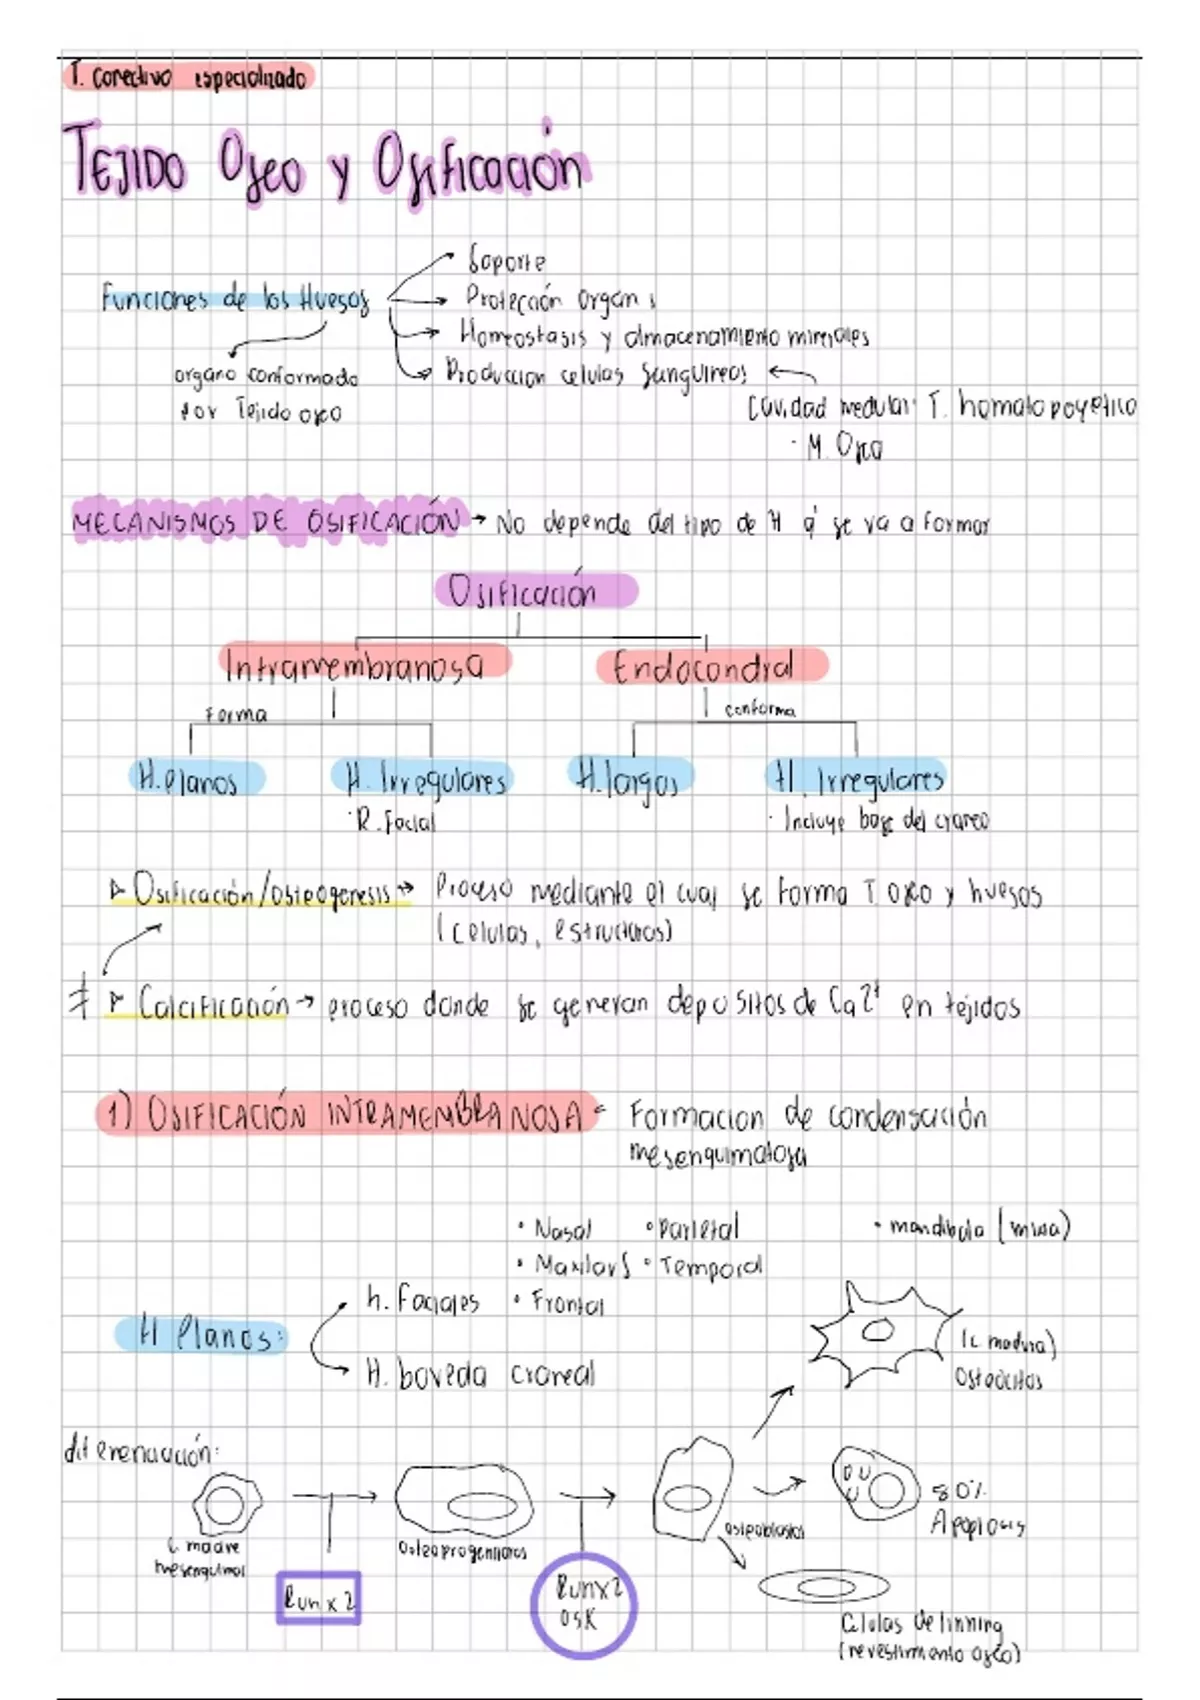 T. Conectivo especializado
TEJIDO Oseo y Osificación
Soporte
Funciones de los Huesos
Protección organ s
Homeostasis y almacenamiento minerales
organo conformado
Produccion celulas Sanguineas
por Tejido oseo
Cavidad medular: T. hematopoyetico
· M. Osea
MECANISMOS DE OSIFICACIÓN → No depende del tipo de H q' se va a formar
Osificación
Intramembranosa
Endocondral
Forma
conforma
H. Planos
H. Irregulares
H. largos
H. Irregulares
· R. Facial
· Incluye base del craneo
▸ Osificación/osteogenesis → Proceso mediante el cual se forma T. oseo y huesos
(celulas, estructuras)
≠ ▸ Calcificación → proceso donde se generan depositos de Ca2+ en tejidos
1) OSIFICACIÓN INTRAMEMBRANOSA = Formacion de condensación
mesenquimatosa
• Nasal • Parietal • mandibula (mixa)
• Maxilars • Temporal
h. Faciales • Frontal
H Planos:
H. boveda craneal
(c. madura)
Osteocitos
diferenciación:
80%
Apoptosis
Osteoblastos
C. madre
mesenquimal
Osteoprogenitoras
Runx2
Runx2
osx
Celulas de linning
(revestimiento oseo)